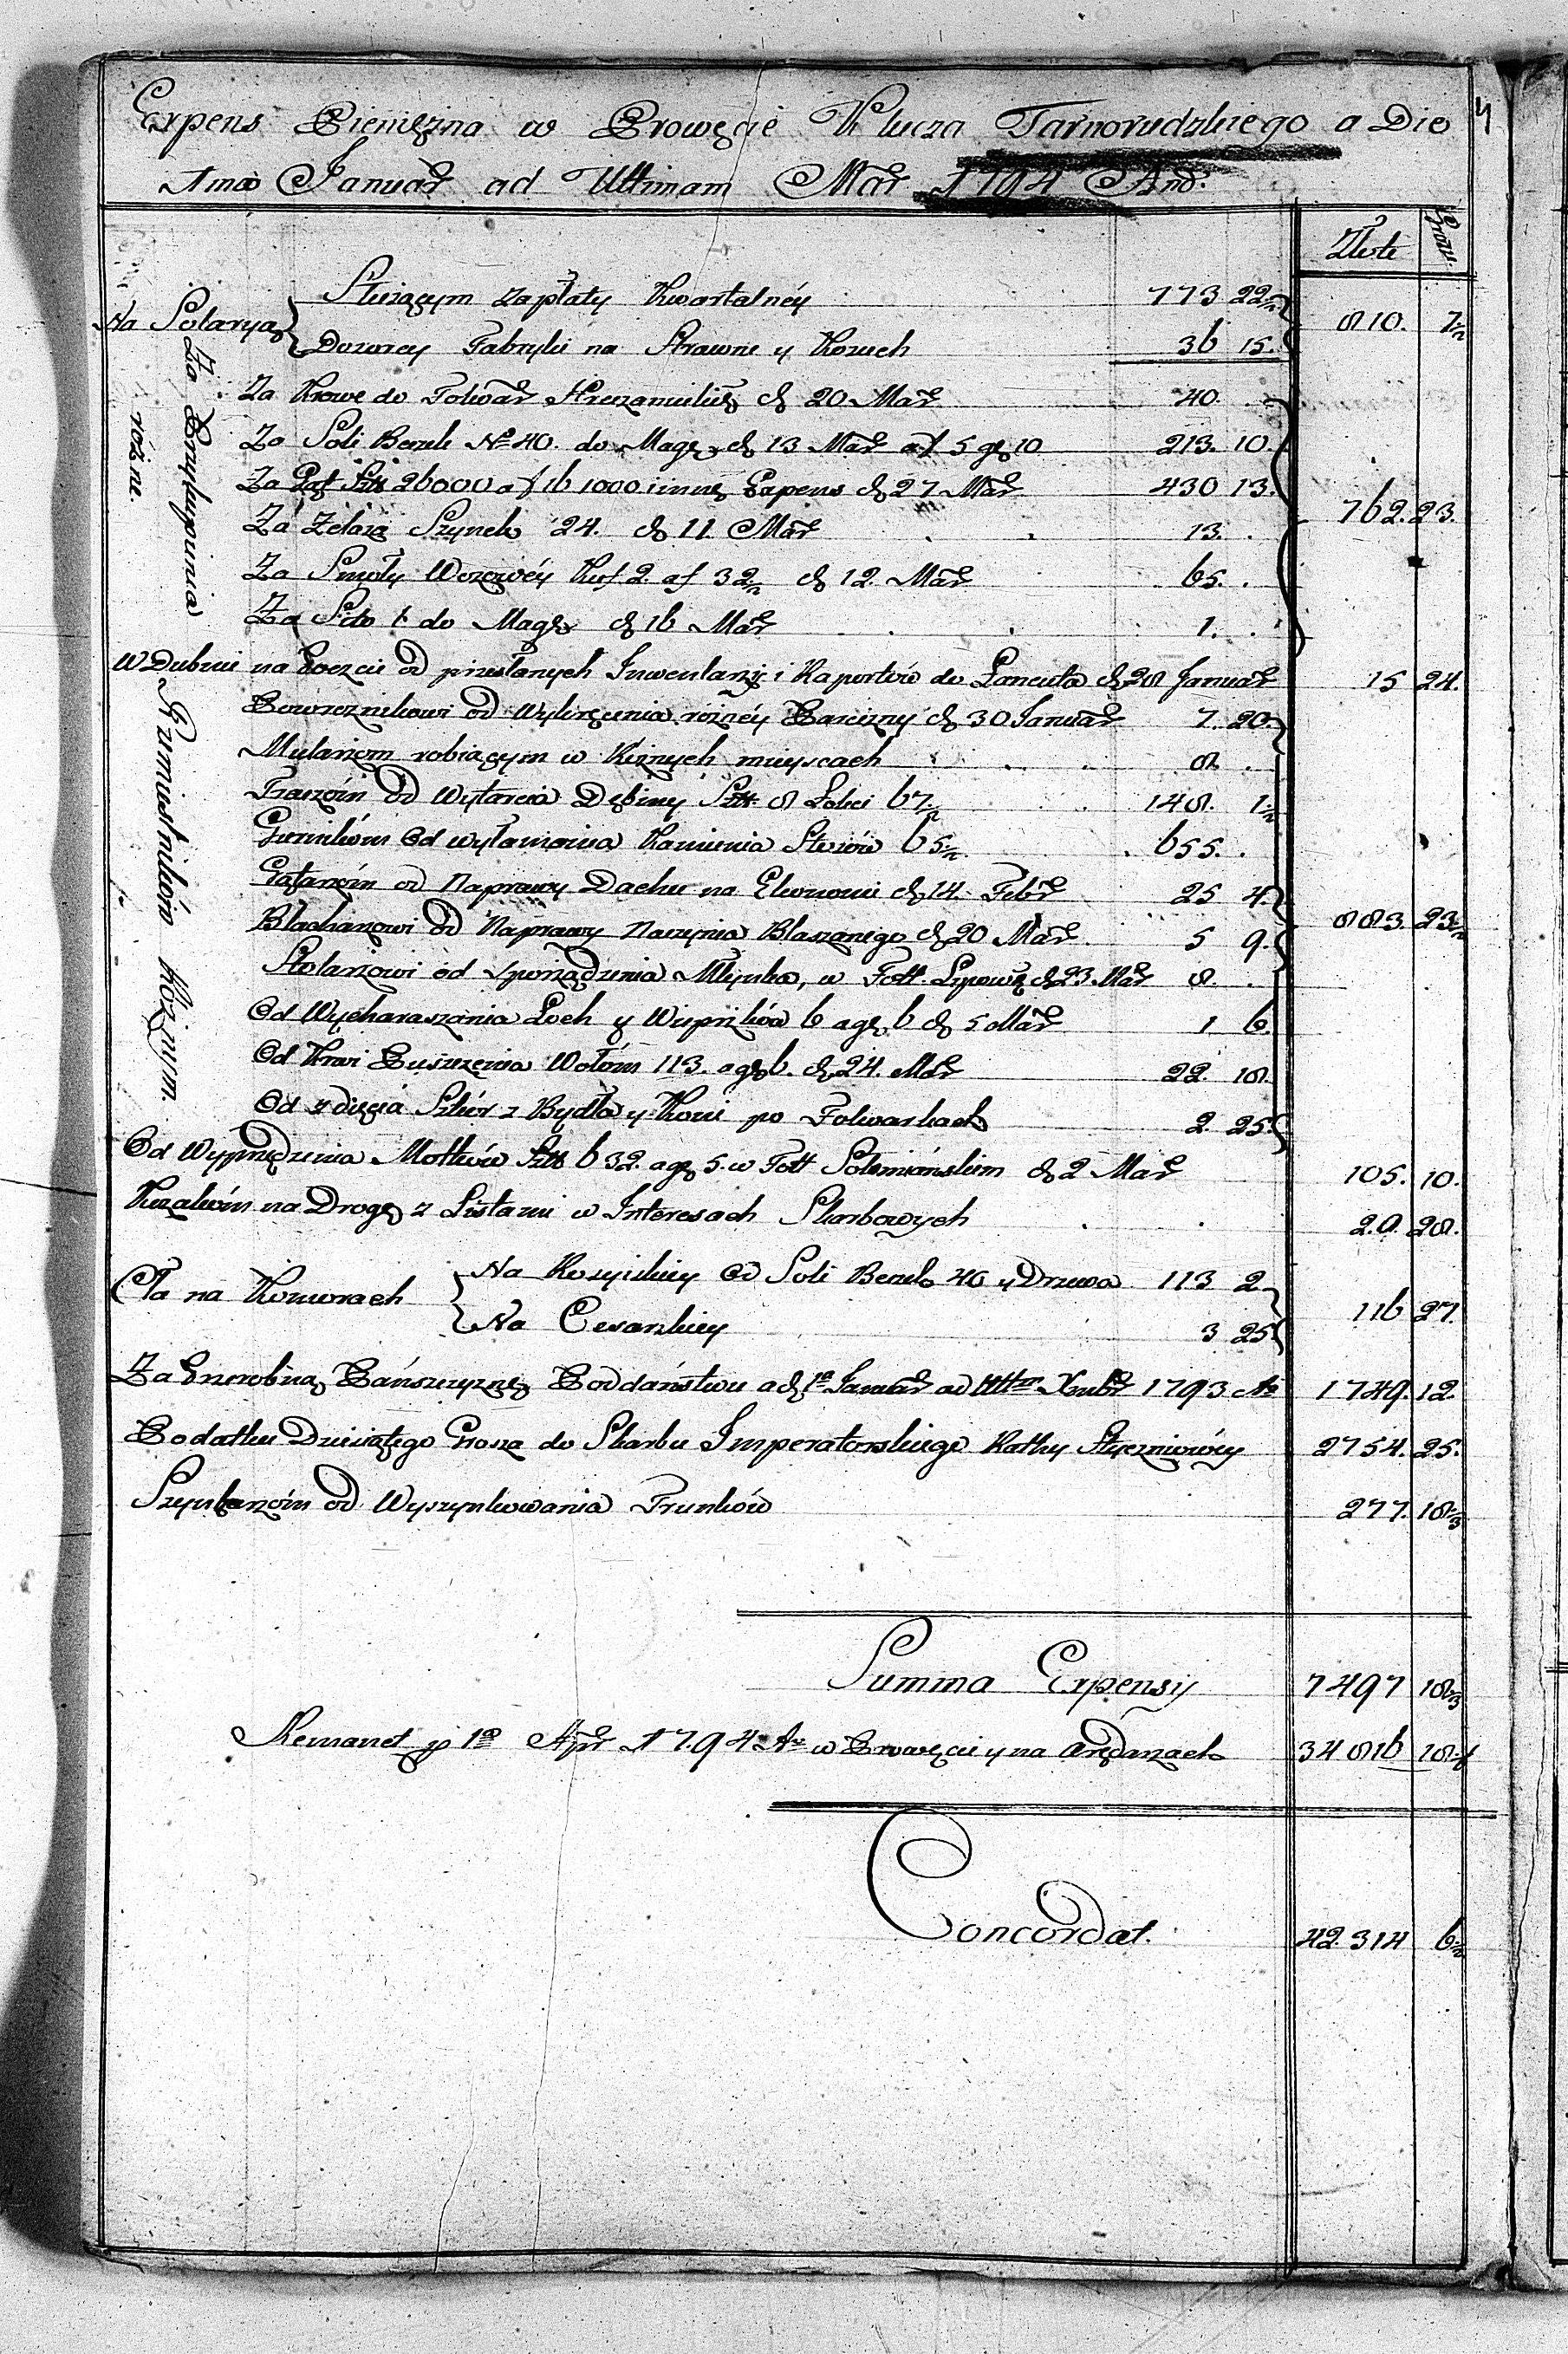 4
Expens Pieniężna w Prowęcie Klucza Tarnorudzkiego a Die
1ma Januar ad Ultimam Mar 1794 And.
Złote Grosz.
Na Solarya
Służącym zapłaty Kwartalnéy 773 22/½
Dozorcy Fabryki na Strawne y Kozuch 36 15.
810. 7/½
Za Przykupienia różne.
Za Krowę do Folwar Hreczanukiĕ d 20 Mar 40. .
Za Soli Beczek No 40. do Magȝ d 13 Mar af 5 gȝ 10 213. 10.
Za Szt 26000 af 16 1000 Expens d 27 Mar 430 13.
Za Żelaza Szynek 24. d 11. Mar 13. .
Za Smoły Wozowéy Kuf 2. af 32/½ d 12. Mar 65. .
Za Sito 1 do Magȝ d 16 Mar 1. .
762. 23.
W Dubnie na Poczcie od przesłanych Inwentarzy i Raportów do Lancuta d 28 Januar 15 24.
Rzemieslników Róznym.
Powroznikowi od Wykręcenia rózney Parcizny d 30 Januar 7. 20.
Mularzom robiącym w Róznych mieyscach 8 .
Traczóm od Wytarcia Dębiny Szt. 8 Łokci 67/½ 148. 1/½
Gurnikóm Od wyłamania Kamienia Stosów 65/½ 655. .
Gątarzóm od Naprawy Dachu na Ekonomii d 14. Febr 25 4.
Blacharzowi od Naprawy Naczynia Blaszanego d 20 Mar 5 9.
Stolarzowi od Sporządzenia Młynka, w Foll. Lipowĕ d 23. Mar 8. .
Od Wycharaszania Loch y Wieprzków 6 agȝ 6 d 5 Mar 1 6.
Od Krwi Puszczenia Wołóm 113. agȝ 6. d 24. Mar 22. 18.
Od zdięcia Skór z Bydła y Koni po Folwarkach 2. 25.
883. 23/½
Od Wyprzędzenia Motków Szt 632. agȝ 5. w Foll Solomiańskim d 2 Mar 105. 10.
Kozakóm na Drogę z Listami w Interesach Skarbowych 20. 28.
Cła na Komorach
Na Rosyiskiey Od Soli Beczek 40 y Drzewa 113 2
Na Cesarskiey 3 25
116 27.
Za Enerobiną Pańszczyznę Poddaństwu a d 1a Januar ad Ultm Xmbr 1793 Ao 1749. 12.
Podatku Dziesiątego Grosza do Skarbu Imperatorskiego Rathy Styczniowéy 2754. 25.
Szynkarzóm od Wyszynkowania Trunków 277. 18/⅔
Summa Expensy 7497 18/⅔
Remanet p 1a Apr 1794 Ao w Prowęcie y na Arędarzach 34816 18
Concordat. 42.314 6/½